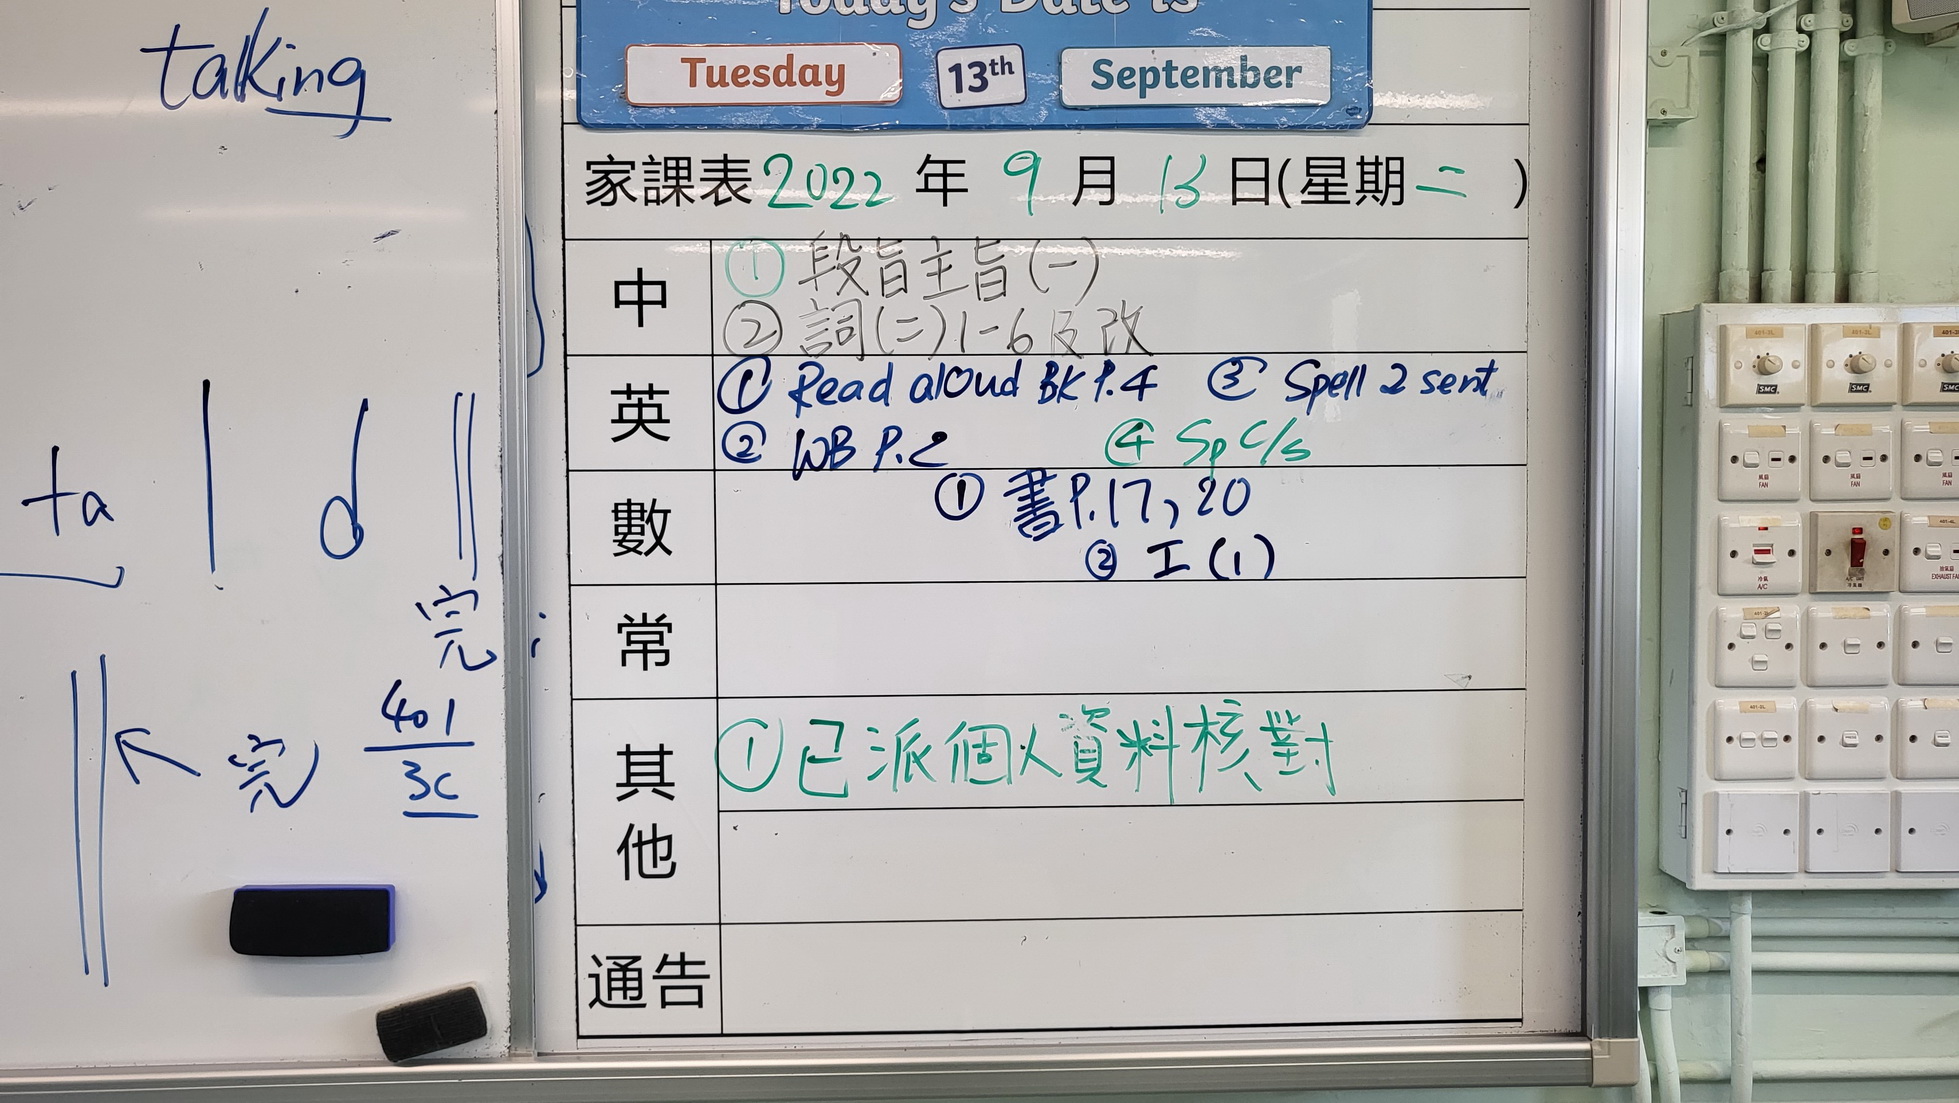 talking
ta
完
完
401
3C
Today's Date is
Tuesday 13th September
家課表2022年9月13日(星期二)
中
① 段旨主旨(一)
② 詞(二)1-6及改
英
① Read aloud BK P.4 ③ Spell 2 sent.
② WB P.2 ④ Sp C/S
數
① 書P.17, 20
② 工(1)
常
其他
①已派個人資料核對
通告
SMC SMC SMC
風扇 FAN
風扇 FAN
冷氣 A/C
EXHAUST FAN